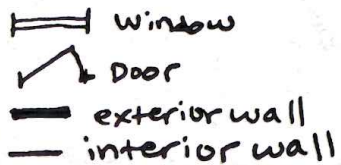 window
Door
exterior wall
interior wall